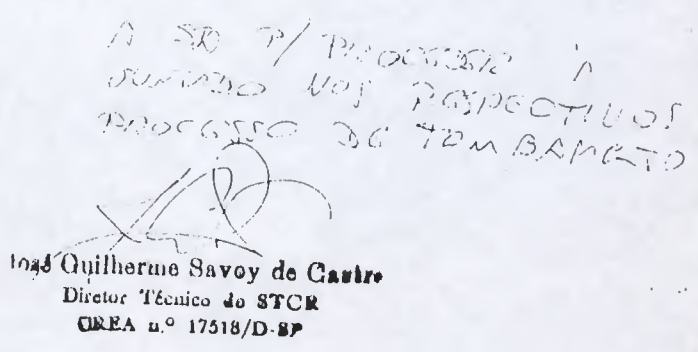 A SA P/ PROCEDER À
JUNTADA NOS RESPECTIVOS
PROCESSO DE TOMBAMENTO
José Guilherme Savoy de Castro
Diretor Técnico do STCR
CREA n.º 17518/D-SP